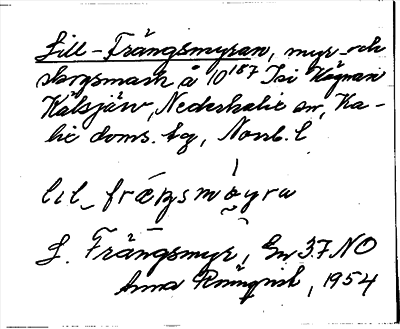 Lill-Trängsmyran, myr och
skogsmark å 10¹⁸⁷ Isi Kägnari
Kälsjärv, Nederkalix sn, Ka-
lix doms. tg, Norrb. l
L. Trängsmyr, Gw 37 NO
Anna Rönnqvist, 1954